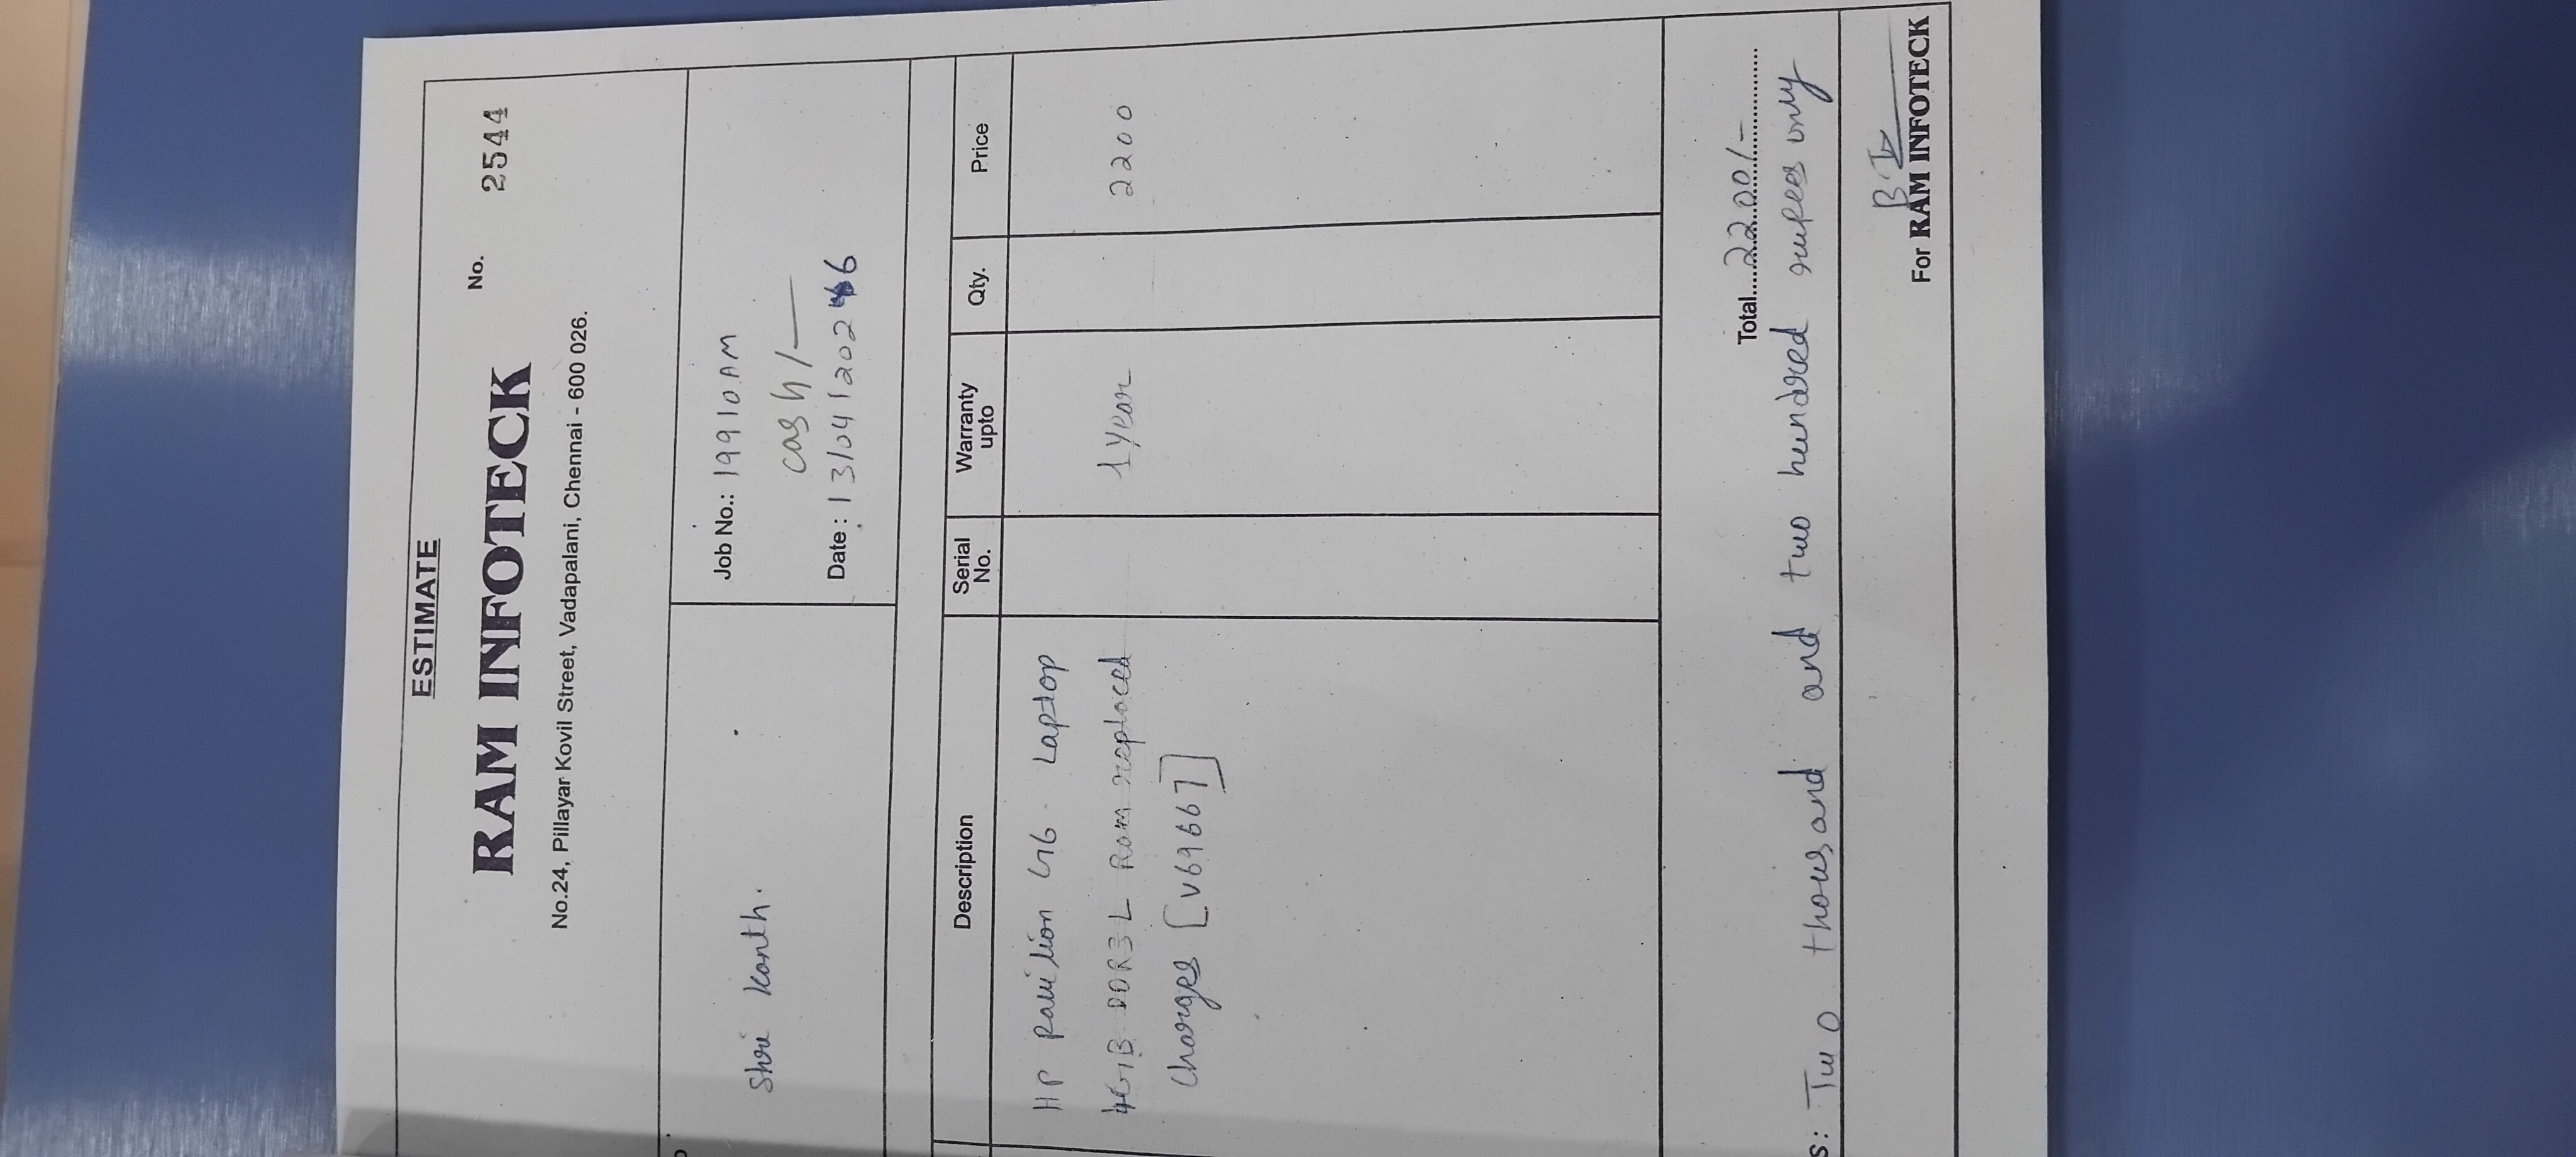 ESTIMATE
RAM INFOTECK
No. 2544
No.24, Pillayar Kovil Street, Vadapalani, Chennai - 600 026.
Shri Kanth.
Job No.: 19910AM
cash/—
Date : 13/04/2026
Description Serial No. Warranty upto Qty. Price
HP Pavilion G6 Laptop
4GB DDR3L Ram replaced 1 year 2200
Charges [V69667]
Total 2200/-
s: Two thousand and two hundred rupees only
For RAM INFOTECK